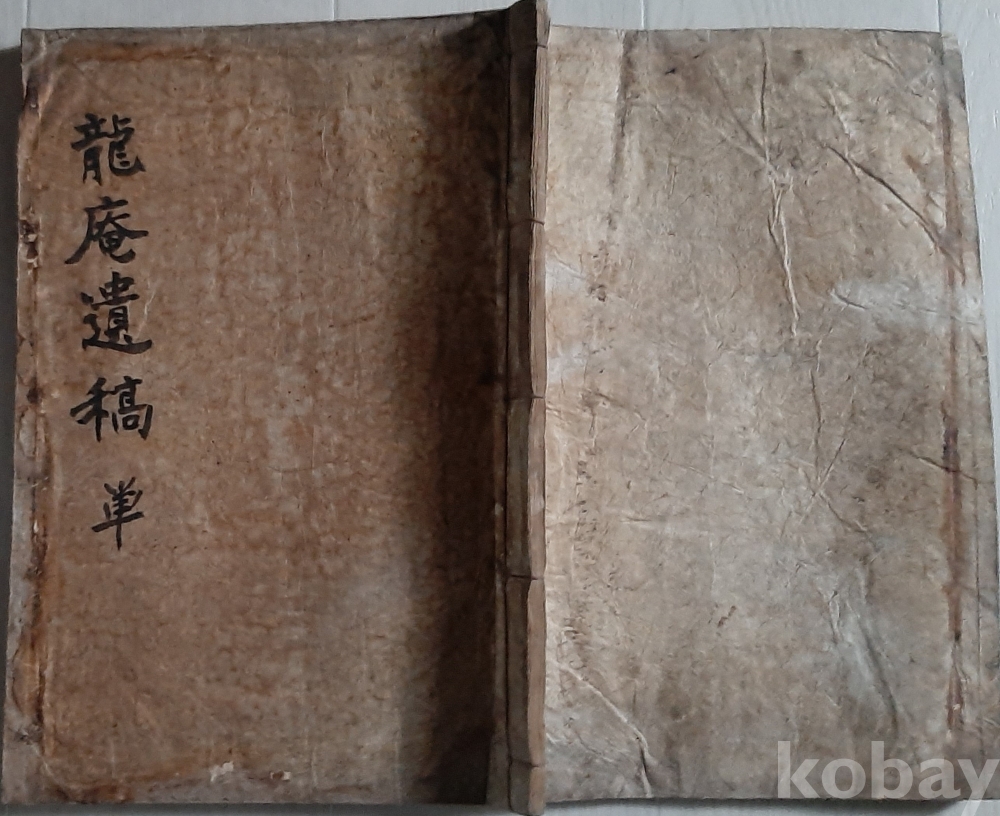 龍庵遺稿 単
kobay